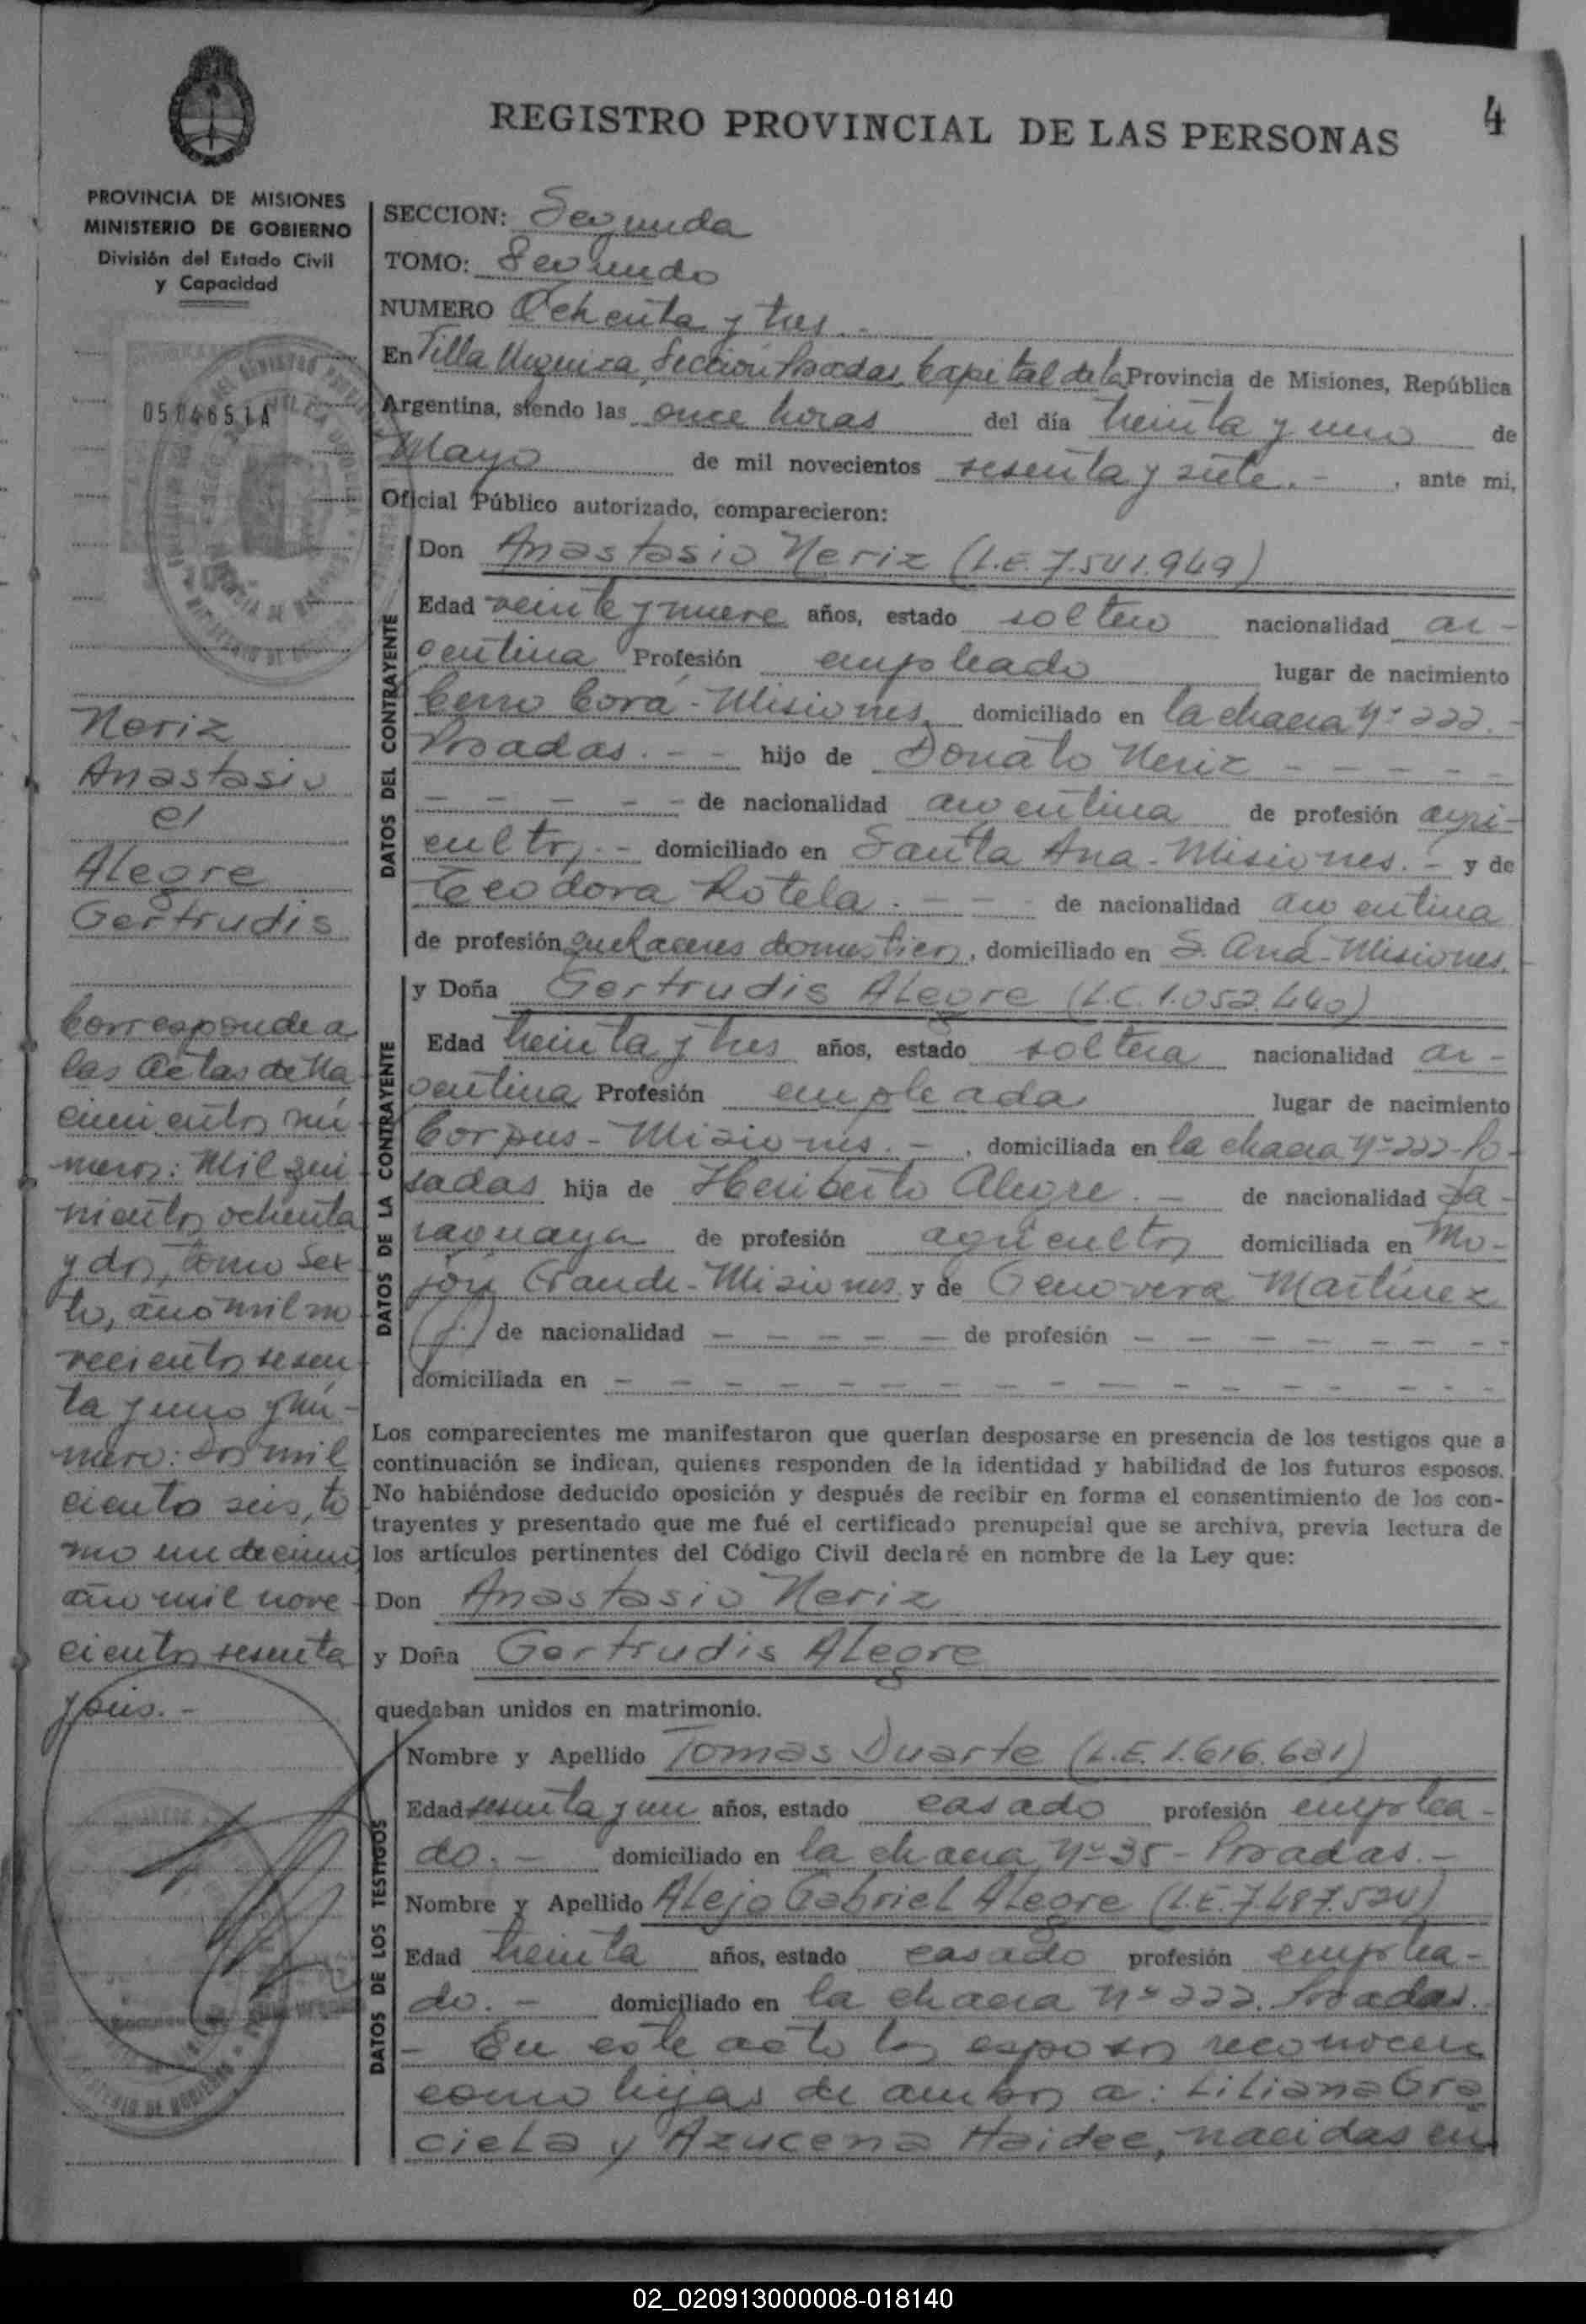 REGISTRO PROVINCIAL DE LAS PERSONAS
4
PROVINCIA DE MISIONES
MINISTERIO DE GOBIERNO
División del Estado Civil
y Capacidad
0504651A
Neriz
Anastasio
el
Alegre
Gertrudis
Corresponde a
las Actas de Na
cimientos nú
meros: Mil qui
nientos ochenta
y dos, tomo Sex
to, año mil no
vecientos sesen
ta y uno y nú-
mero: dos mil
ciento seis, to
mo undecimo,
año mil nove
cientos sesenta
y seis.-
SECCION: Segunda
TOMO: Segundo
NUMERO Ochenta y tres.-
En Villa Urquiza, Sección Posadas, Capital de la Provincia de Misiones, República
Argentina, siendo las once horas del día treinta y uno de
Mayo de mil novecientos sesenta y siete.- , ante mi,
Oficial Público autorizado, comparecieron:
DATOS DEL CONTRAYENTE
Don Anastasio Neriz (L.E. 7.541.949)
Edad veinte y nueve años, estado soltero nacionalidad ar-
gentina Profesión empleado lugar de nacimiento
Cerro Corá - Misiones, domiciliado en la chacra Nº 222.-
Posadas. - - hijo de Donato Neriz - - - - -
- - - - - de nacionalidad argentina de profesión agri-
cultor.- domiciliado en Santa Ana - Misiones.- y de
Teodora Rotela. - - - de nacionalidad argentina
de profesión quehaceres domesticos, domiciliado en S. Ana - Misiones.
DATOS DE LA CONTRAYENTE
y Doña Gertrudis Alegre (L.C. 1.052.440)
Edad treinta y tres años, estado soltera nacionalidad ar-
gentina Profesión empleada lugar de nacimiento
Corpus - Misiones. -, domiciliada en la chacra Nº 222 - Po-
sadas hija de Heriberto Alegre. - de nacionalidad pa-
raguaya de profesión agricultor domiciliada en Mo-
jón Grande - Misiones y de Genoveva Martínez
(f.) de nacionalidad - - - - - de profesión - - - - - - -
domiciliada en - - - - - - - - - - - - - - - -
Los comparecientes me manifestaron que querían desposarse en presencia de los testigos que a
continuación se indican, quienes responden de la identidad y habilidad de los futuros esposos.
No habiéndose deducido oposición y después de recibir en forma el consentimiento de los con-
trayentes y presentado que me fué el certificado prenupcial que se archiva, previa lectura de
los artículos pertinentes del Código Civil declaré en nombre de la Ley que:
Don Anastasio Neriz
y Doña Gertrudis Alegre
quedaban unidos en matrimonio.
DATOS DE LOS TESTIGOS
Nombre y Apellido Tomas Duarte (L.E. 1.616.631)
Edad sesenta y un años, estado casado profesión emplea-
do.- domiciliado en la chacra Nº 35 - Posadas.-
Nombre y Apellido Alejo Gabriel Alegre (L.E. 7.487.520)
Edad treinta años, estado casado profesión emplea-
do.- domiciliado en la chacra Nº 222. Posadas.
- En este acto los esposos reconocen
como hijas de ambos a: Liliana Gra
ciela y Azucena Haidee, nacidas en
02_020913000008-018140